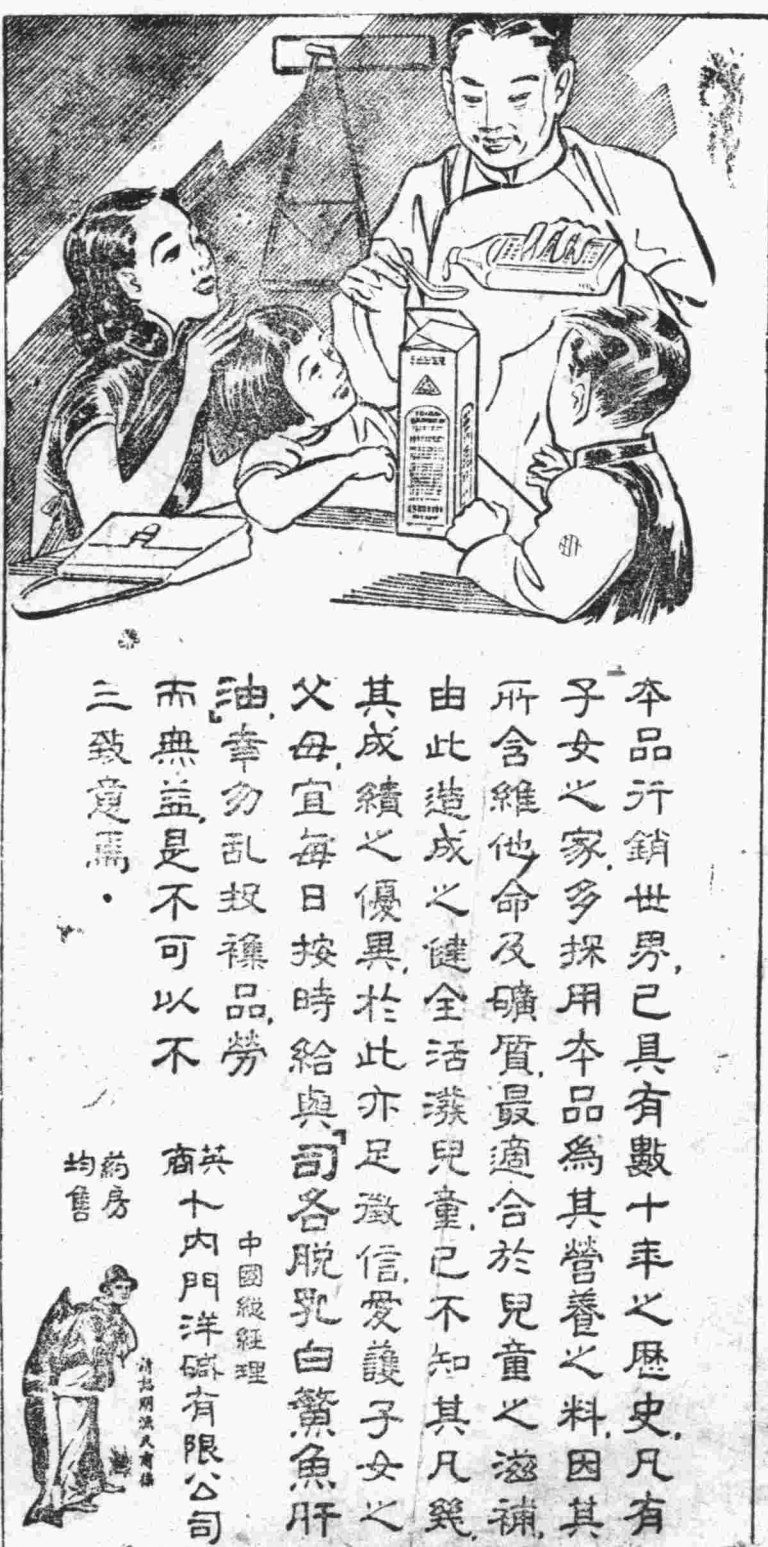 本品行銷世界，已具有數十年之歷史，凡有
子女之家，多採用本品為其營養之料，因其
所含維他命及礦質，最適合於兒童之滋補，
由此造成之健全活潑兒童，已不知其凡幾，
其成績之優異，於此亦足徵信，愛護子女之
父母，宜每日按時給與「司各脫乳白鰵魚肝
油」，幸勿乱投襍品，勞
而無益，是不可以不
三致意焉．
中國總經理
英商
卜內門洋碱有限公司
药房
均售
請認明漁夫商標